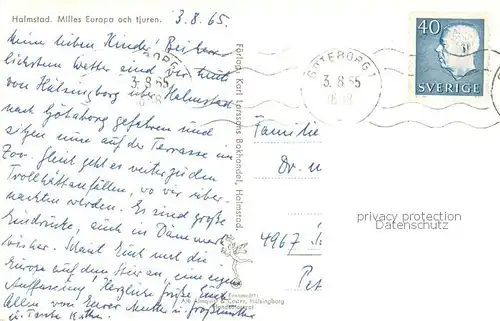 Halmstad. Milles Europa och tjuren.
3.8.65.
Meine lieben Kinder! Bei herr-
lichstem Wetter sind wir heute
von Hälsingborg über Halmstad
nach Götaborg gefahren und
sitzen nun auf der Terrasse im
Zoo. Gleich geht es weiter zu den
Trollhättanfällen, wo wir über-
nachten werden. Es sind große
Eindrücke, auch in Dänemark
bisher. Schaut Euch mal die
Europa auf dem Stier an, eine eigene
Auffassung! Herzliche Grüße Euch
Allen von Eurer Mutter u. Großmutter
u. Tante Käthe.
Förlag: Karl Larssons Bokhandel, Halmstad.
AB Almquist & Cöster, Hälsingborg
GÖTEBORG 1
3. 8. 65
40
SVERIGE
Familie
Dr.
4967
privacy protection
Datenschutz